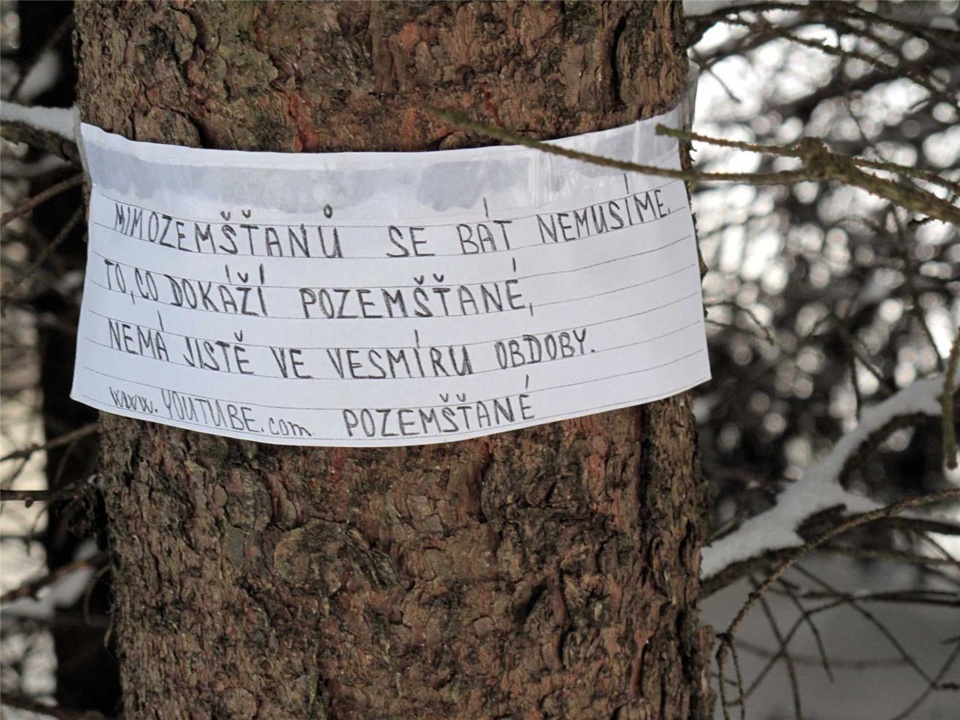 MIMOZEMŠŤANŮ SE BÁT NEMUSÍME.
TO, CO DOKÁŽÍ POZEMŠŤANÉ,
NEMÁ JISTĚ VE VESMÍRU OBDOBY.
www.YOUTUBE.com POZEMŠŤANÉ